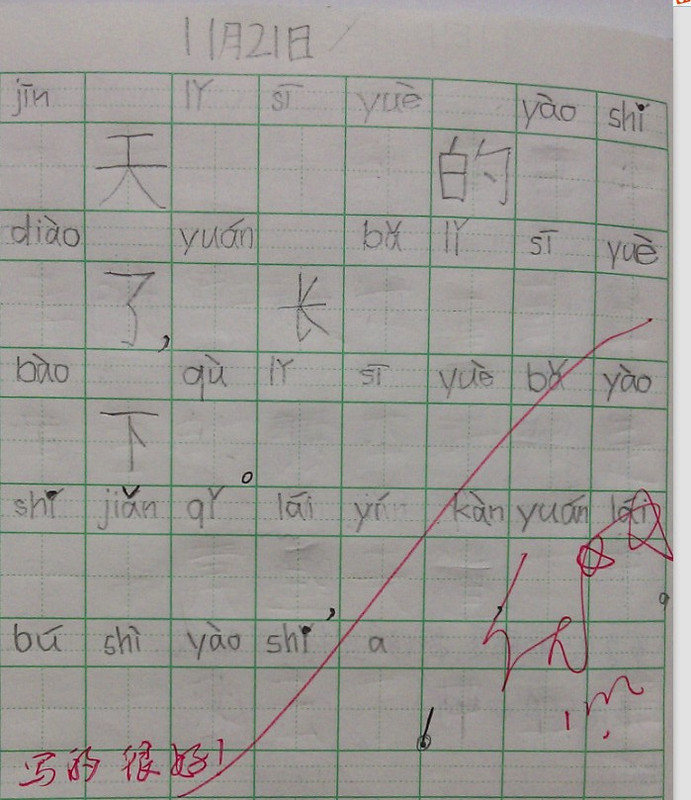 11月21日
jīn 天 lǐ sī yuè 的 yào shi
diào 了, yuán 长 bǎ lǐ sī yuè
bào 下 qù 。 lǐ sī yuè bǎ yào
shi jiǎn qǐ lái , yí kàn yuán lái
bú shì yào shi a !
写的很好!